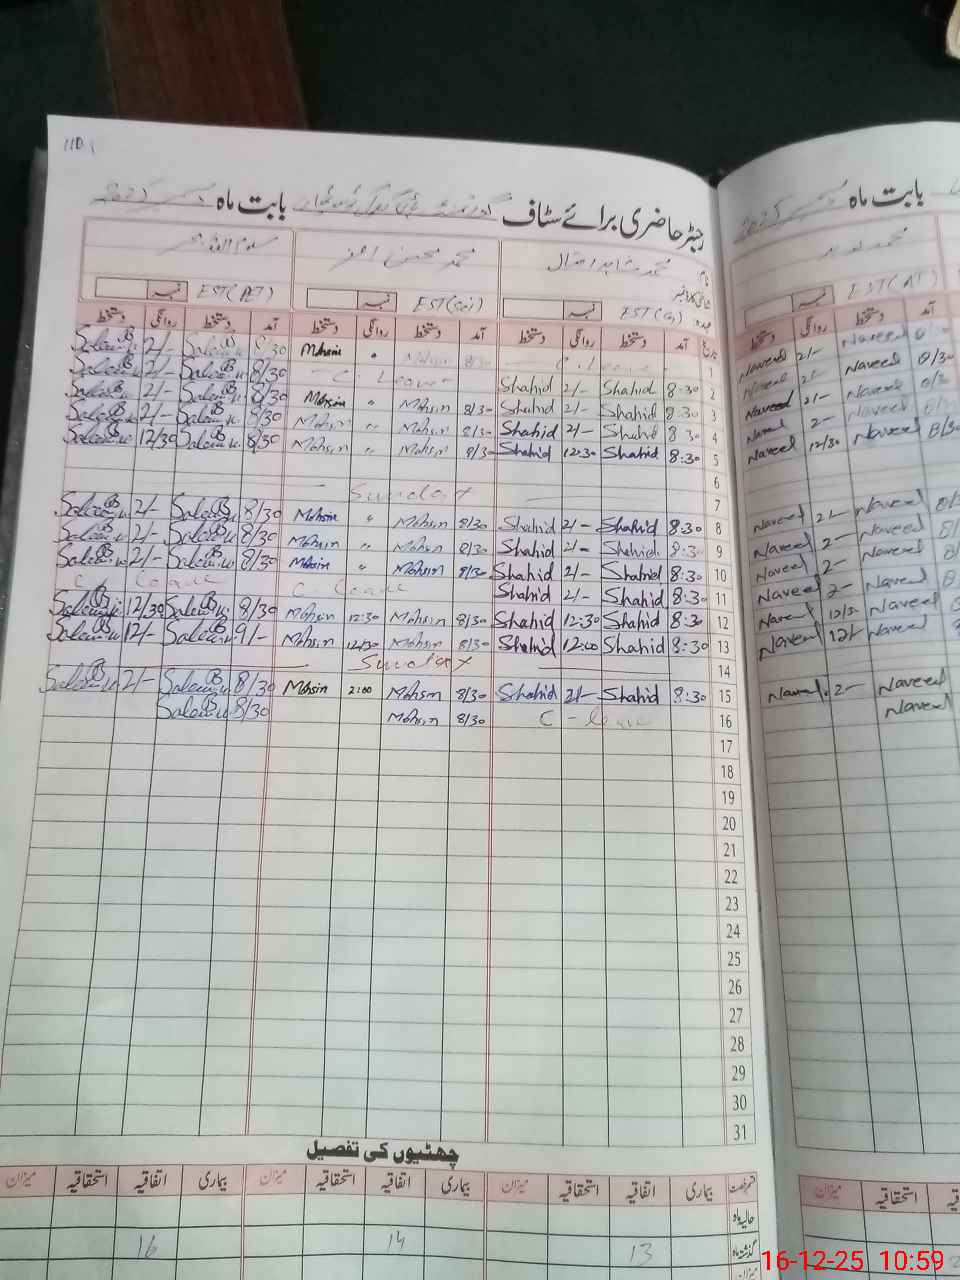 رجسٹر حاضری برائے سٹاف گورنمنٹ بابت ماہ
نام محمد شاہد اقبال محمد محسن
عہدہ EST(    ) نمبر EST(Sci) نمبر EST(PET) نمبر
تاریخ آمد دستخط روانگی دستخط آمد دستخط روانگی دستخط آمد دستخط روانگی دستخط
1 C. Leave 8/30 Mohsin " Mohsin 8/30 Saleem 2/- Saleem
2 8:30 Shahid 2/- Shahid C. Leave 8/30 Saleem 2/- Saleem
3 8:30 Shahid 2/- Shahid 8/30 Mohsin " Mohsin 8/30 Saleem 2/- Saleem
4 8:30 Shahid 2/- Shahid 8/30 Mohsin " Mohsin 8/30 Saleem 2/- Saleem
5 8:30 Shahid 12:30 Shahid 8/30 Mohsin " Mohsin 8/30 Saleem 12/30 Saleem
6
7 Sunday
8 8:30 Shahid 2/- Shahid 8/30 Mohsin " Mohsin 8/30 Saleem 2/- Saleem
9 8:30 Shahid 2/- Shahid 8/30 Mohsin " Mohsin 8/30 Saleem 2/- Saleem
10 8:30 Shahid 2/- Shahid 8/30 Mohsin " Mohsin 8/30 Saleem 2/- Saleem
11 8:30 Shahid 2/- Shahid C. Leave C Leave
12 8:30 Shahid 12:30 Shahid 8/30 Mohsin 12:30 Mohsin 8/30 Saleem 12/30 Saleem
13 8:30 Shahid 12:00 Shahid 8/30 Mohsin Mohsin 9/- Saleem 12/- Saleem
14 Sunday
15 8:30 Shahid 2/- Shahid 8/30 Mohsin 2:00 Mohsin 8/30 Saleem 2/- Saleem
16 C - leave 8/30 Mohsin 8/30 Saleem
17
18
19
20
21
22
23
24
25
26
27
28
29
30
31
چھٹیوں کی تفصیل
قسم رخصت بیماری اتفاقیہ استحقاقیہ میزان بیماری اتفاقیہ استحقاقیہ میزان بیماری اتفاقیہ استحقاقیہ میزان
حالیہ ماہ
گذشتہ ماہ 13 14 16
میزان
بابت ماہ دسمبر
محمد نوید
EST(AT) نمبر
آمد دستخط روانگی دستخط
8/30 Naveed 2/- Naveed
8/30 Naveed 2/- Naveed
8/30 Naveed 2/- Naveed
8/30 Naveed 2- Naveed
8/30 Naveed 12/30 Naveed
Naveed 2/- Naveed
Naveed 2- Naveed
Naveed 2- Naveed
Naveed 2- Naveed
Naveed 12/30 Naveed
Naveed 12/- Naveed
Naveed 2- Naveed
Naveed
میزان استحقاقیہ
16-12-25 10:59